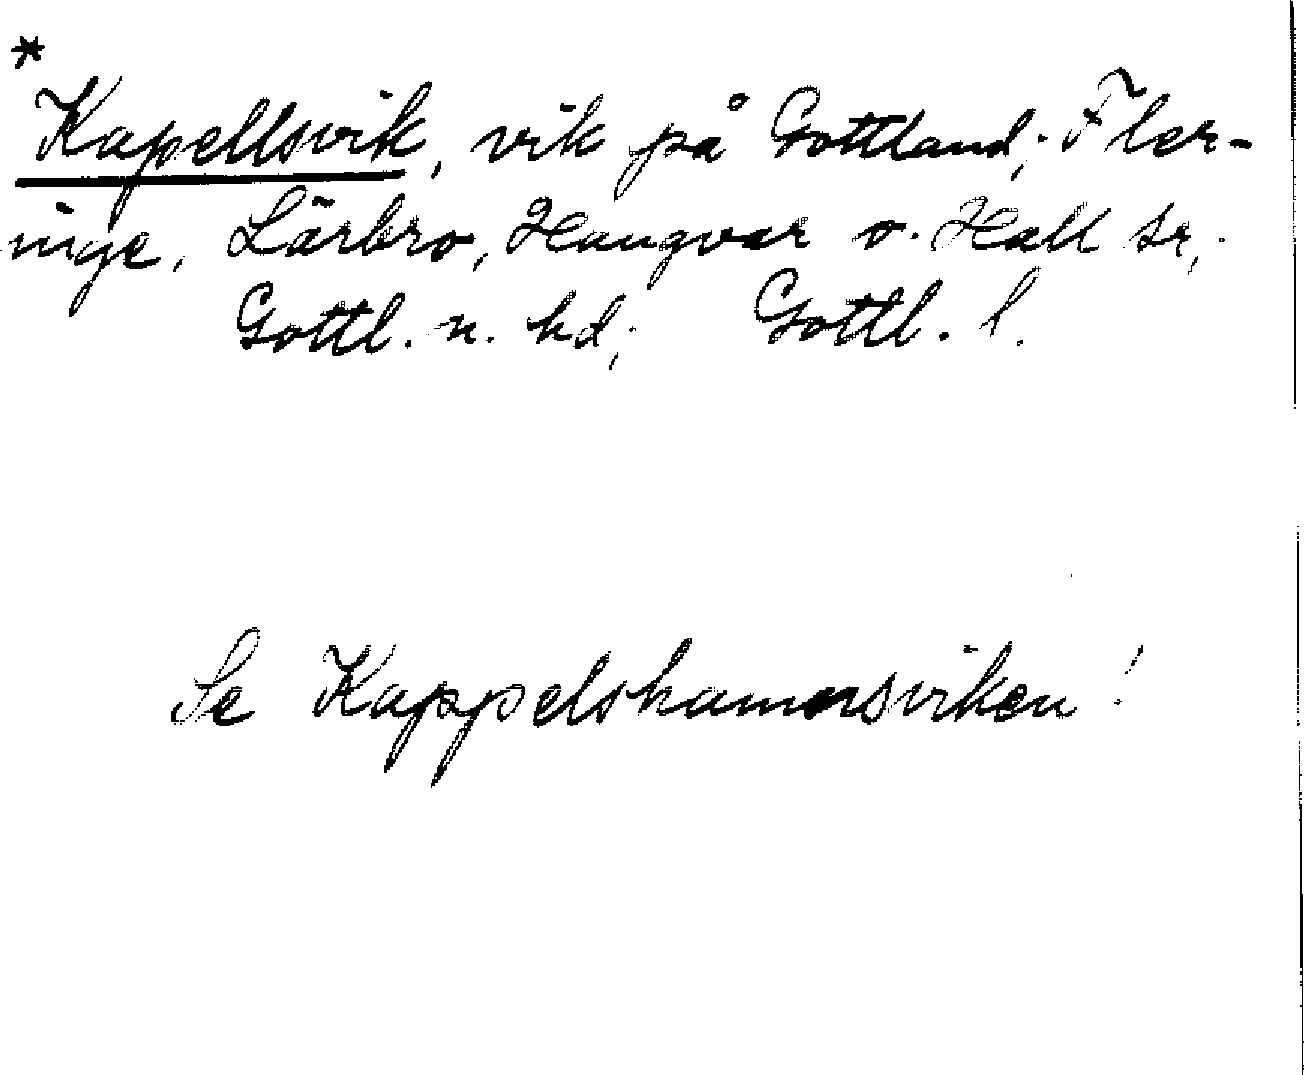 *
Kapellsvik, vik på Gottland; Fler-
inge, Lärbro, Hangvar o. Hall sr,
Gottl. n. hd; Gottl. l.
Se Kappelshamnsviken!